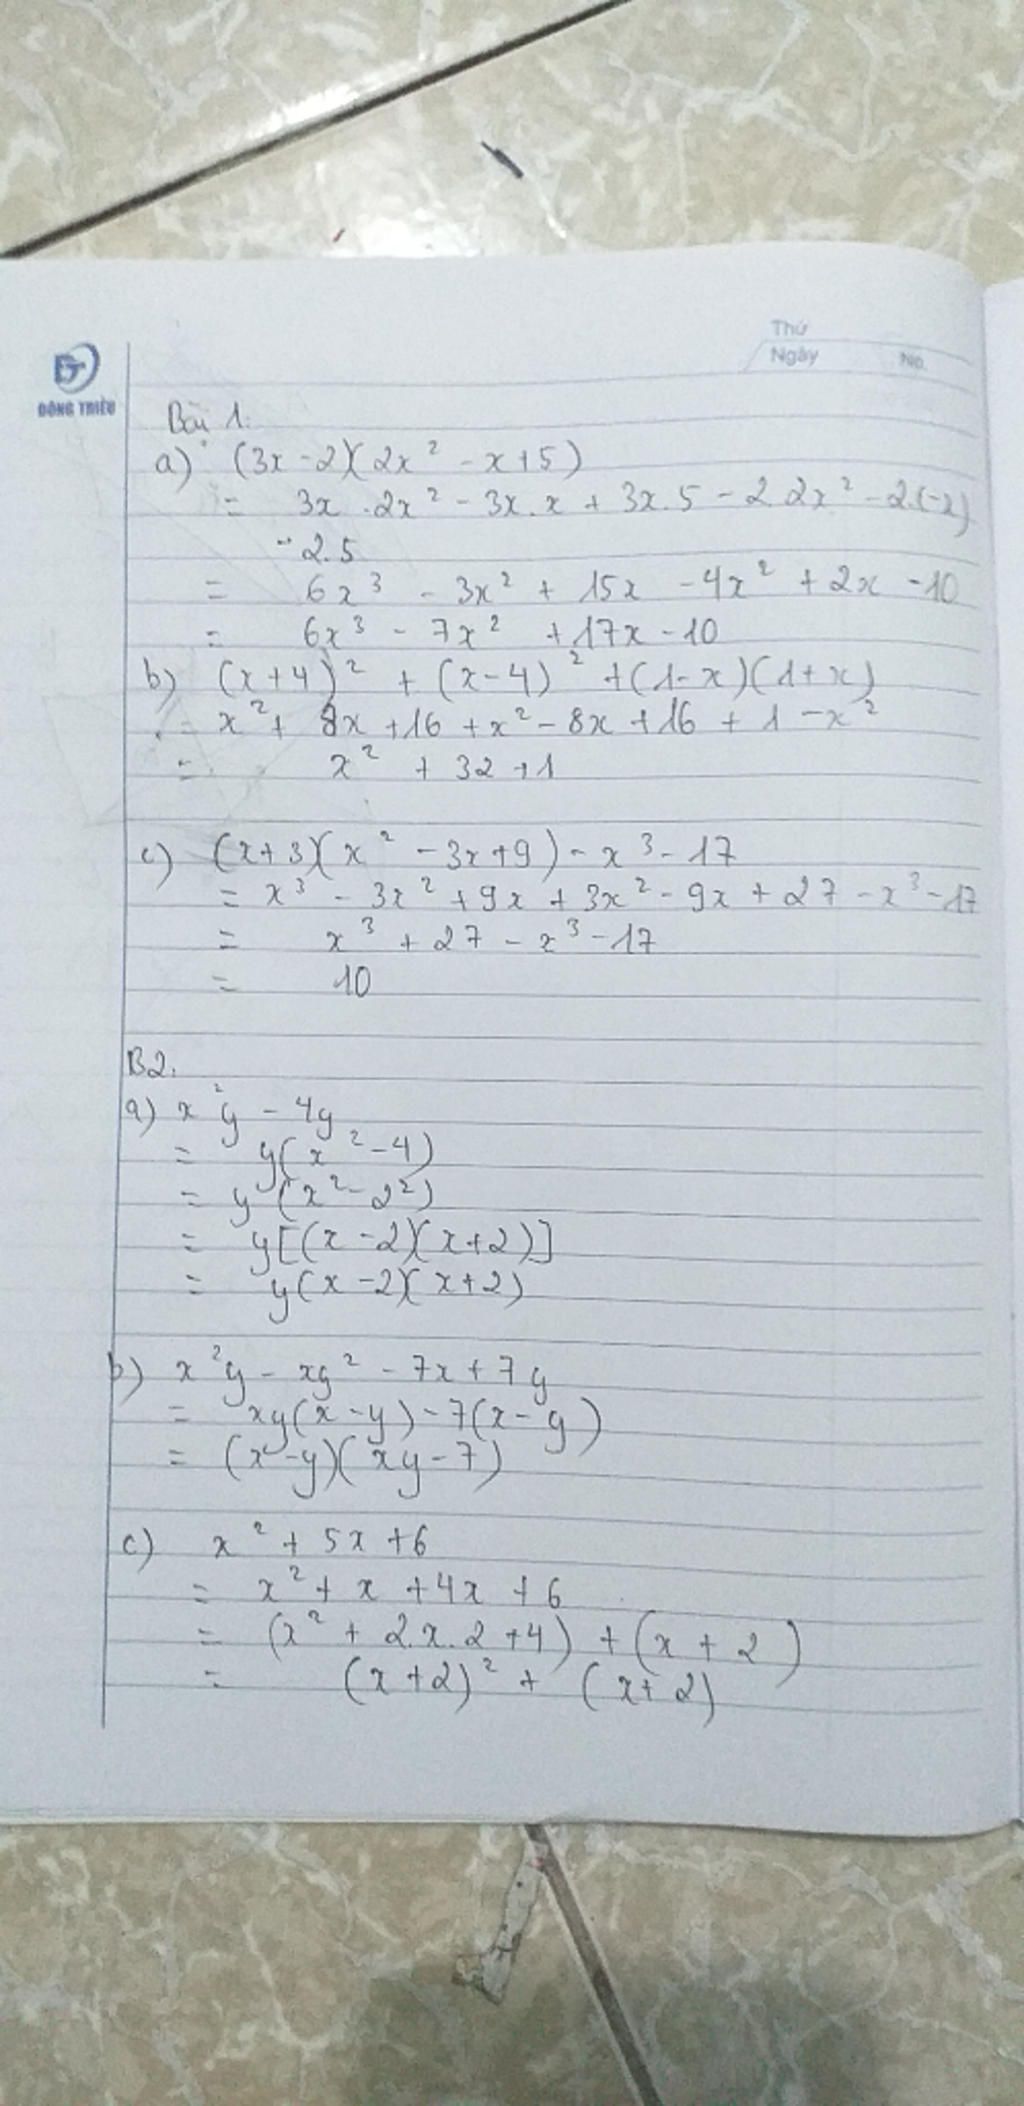 Thứ
Ngày No.
ĐÔNG TRIỀU
Bài 1:
a) (3x - 2)(2x² - x + 5)
= 3x . 2x² - 3x . x + 3x . 5 - 2 . 2x² - 2.(-x)
- 2.5
= 6x³ - 3x² + 15x - 4x² + 2x - 10
= 6x³ - 7x² + 17x - 10
b) (x + 4)² + (x - 4)² + (1 - x)(1 + x)
= x² + 8x + 16 + x² - 8x + 16 + 1 - x²
= x² + 32 + 1
c) (x + 3)(x² - 3x + 9) - x³ - 17
= x³ - 3x² + 9x + 3x² - 9x + 27 - x³ - 17
= x³ + 27 - x³ - 17
= 10
B2.
a) x²y - 4y
= y(x² - 4)
= y(x² - 2²)
= y[(x - 2)(x + 2)]
= y(x - 2)(x + 2)
b) x²y - xy² - 7x + 7y
= xy(x - y) - 7(x - y)
= (x - y)(xy - 7)
c) x² + 5x + 6
= x² + x + 4x + 6
= (x² + 2.x.2 + 4) + (x + 2)
= (x + 2)² + (x + 2)